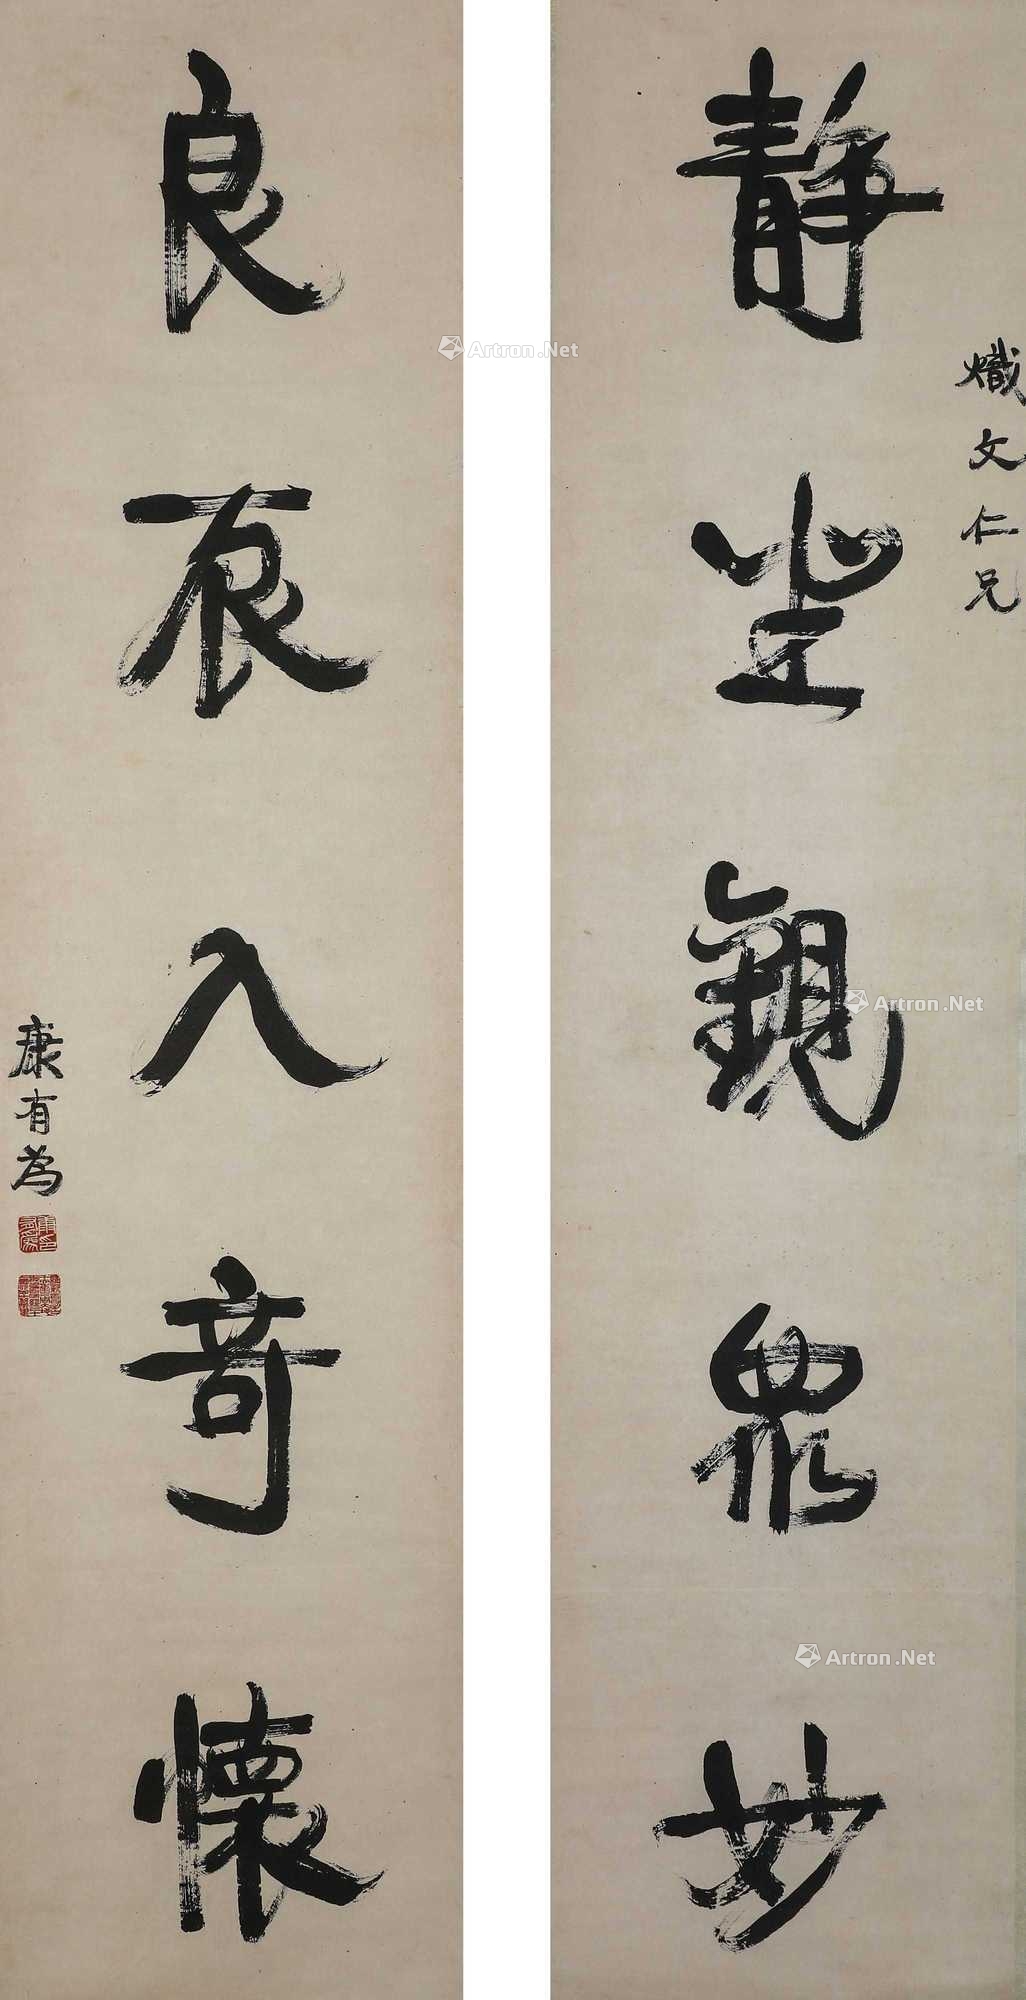 熾文仁兄
靜坐觀眾妙
良辰入奇懷
康有為
Artron.Net
Artron.Net
Artron.Net